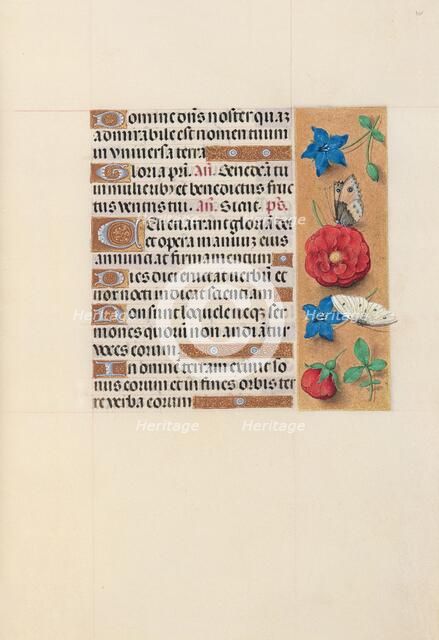 Domine dn̄s noster quā
admirabile est nomen tuum
in vniuersa terra
Gloria pr̄i. Añ. Benedicta tu
in mulieribus et benedictus fruc
tus ventris tui. Añ. Sicut. ps̄.
Celi enarrant gloriā dei
et opera manuū eius
annunciat firmamentum
Dies diei eructat verbū et
nox nocti indicat scientiam
Non sunt loquele neqȝ ser
mones quorū non audiātur
voces eorum
In omnē terram exiuit so
nus eorum et in fines orbis ter
re verba eorum
Heritage Heritage Heritage
Heritage Heritage
Heritage Heritage